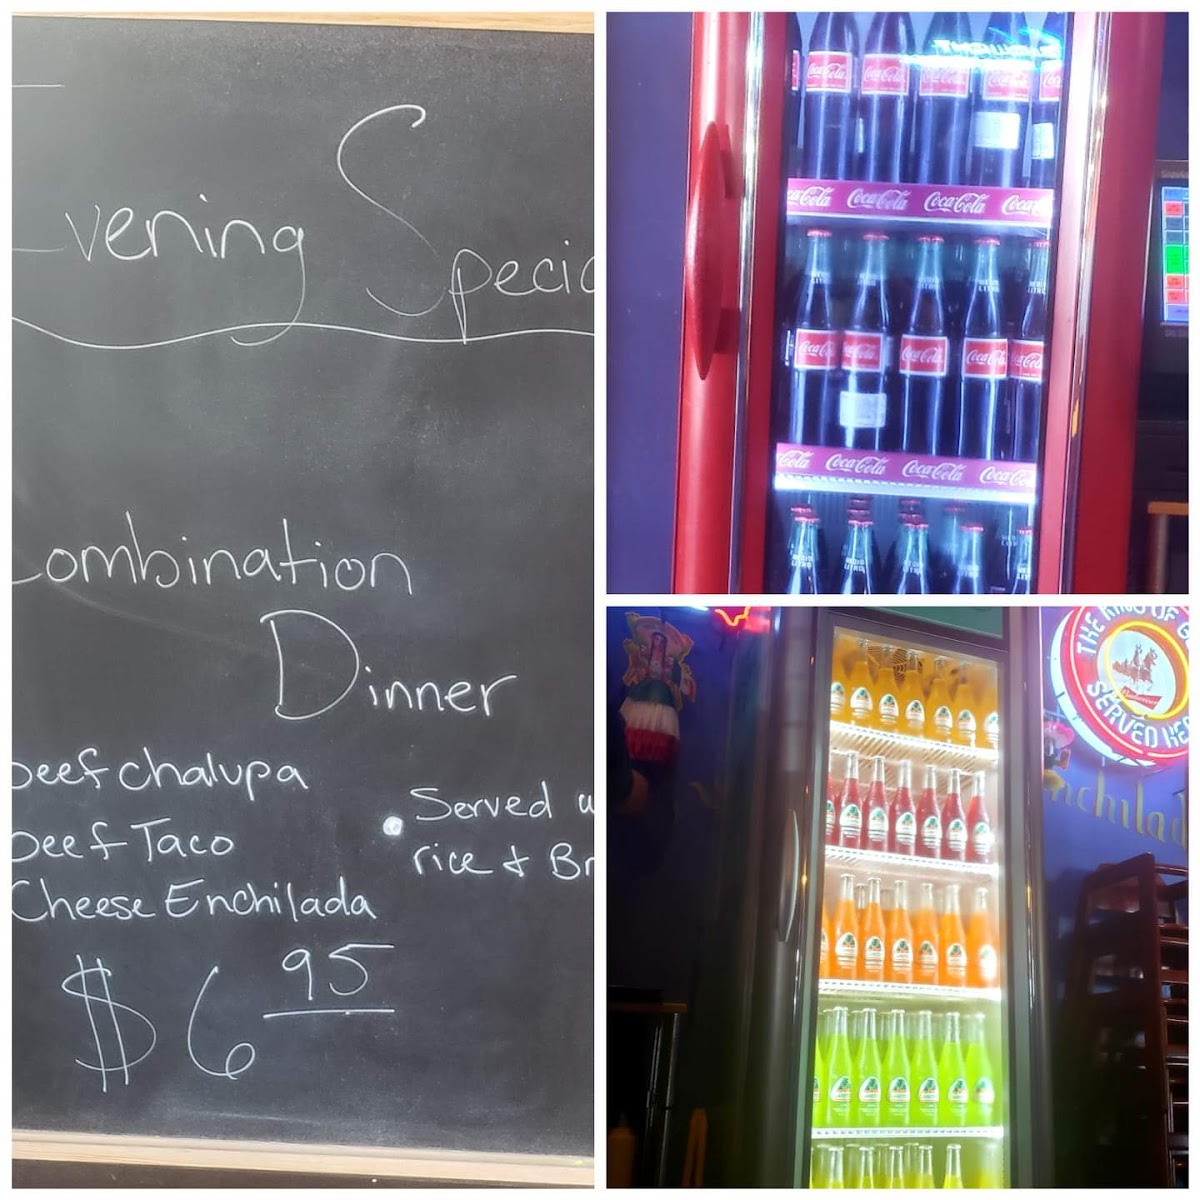 Evening Specia
Combination
Dinner
Beef chalupa
Beef Taco
Cheese Enchilada
• Served w
rice & Br
$6 95
Coca-Cola Coca-Cola Coca-Cola Coca-Cola
Coca-Cola Coca-Cola Coca-Cola Coca-Cola
MEDIO LITRO
Coca-Cola Coca-Cola Coca-Cola Coca-Cola Coca-Cola
Coca-Cola Coca-Cola Coca-Cola Coca-Cola
MEDIO LITRO
THE KING OF
Budweiser
SERVED HE
nchilad